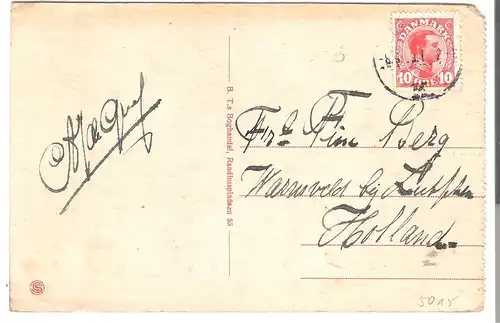 DANMARK
10 10
B. T.s Boghandel, Raadhuspladsen 55
Frk Fine Berg
Warnsveld bij Zutphen
Holland
S
5015